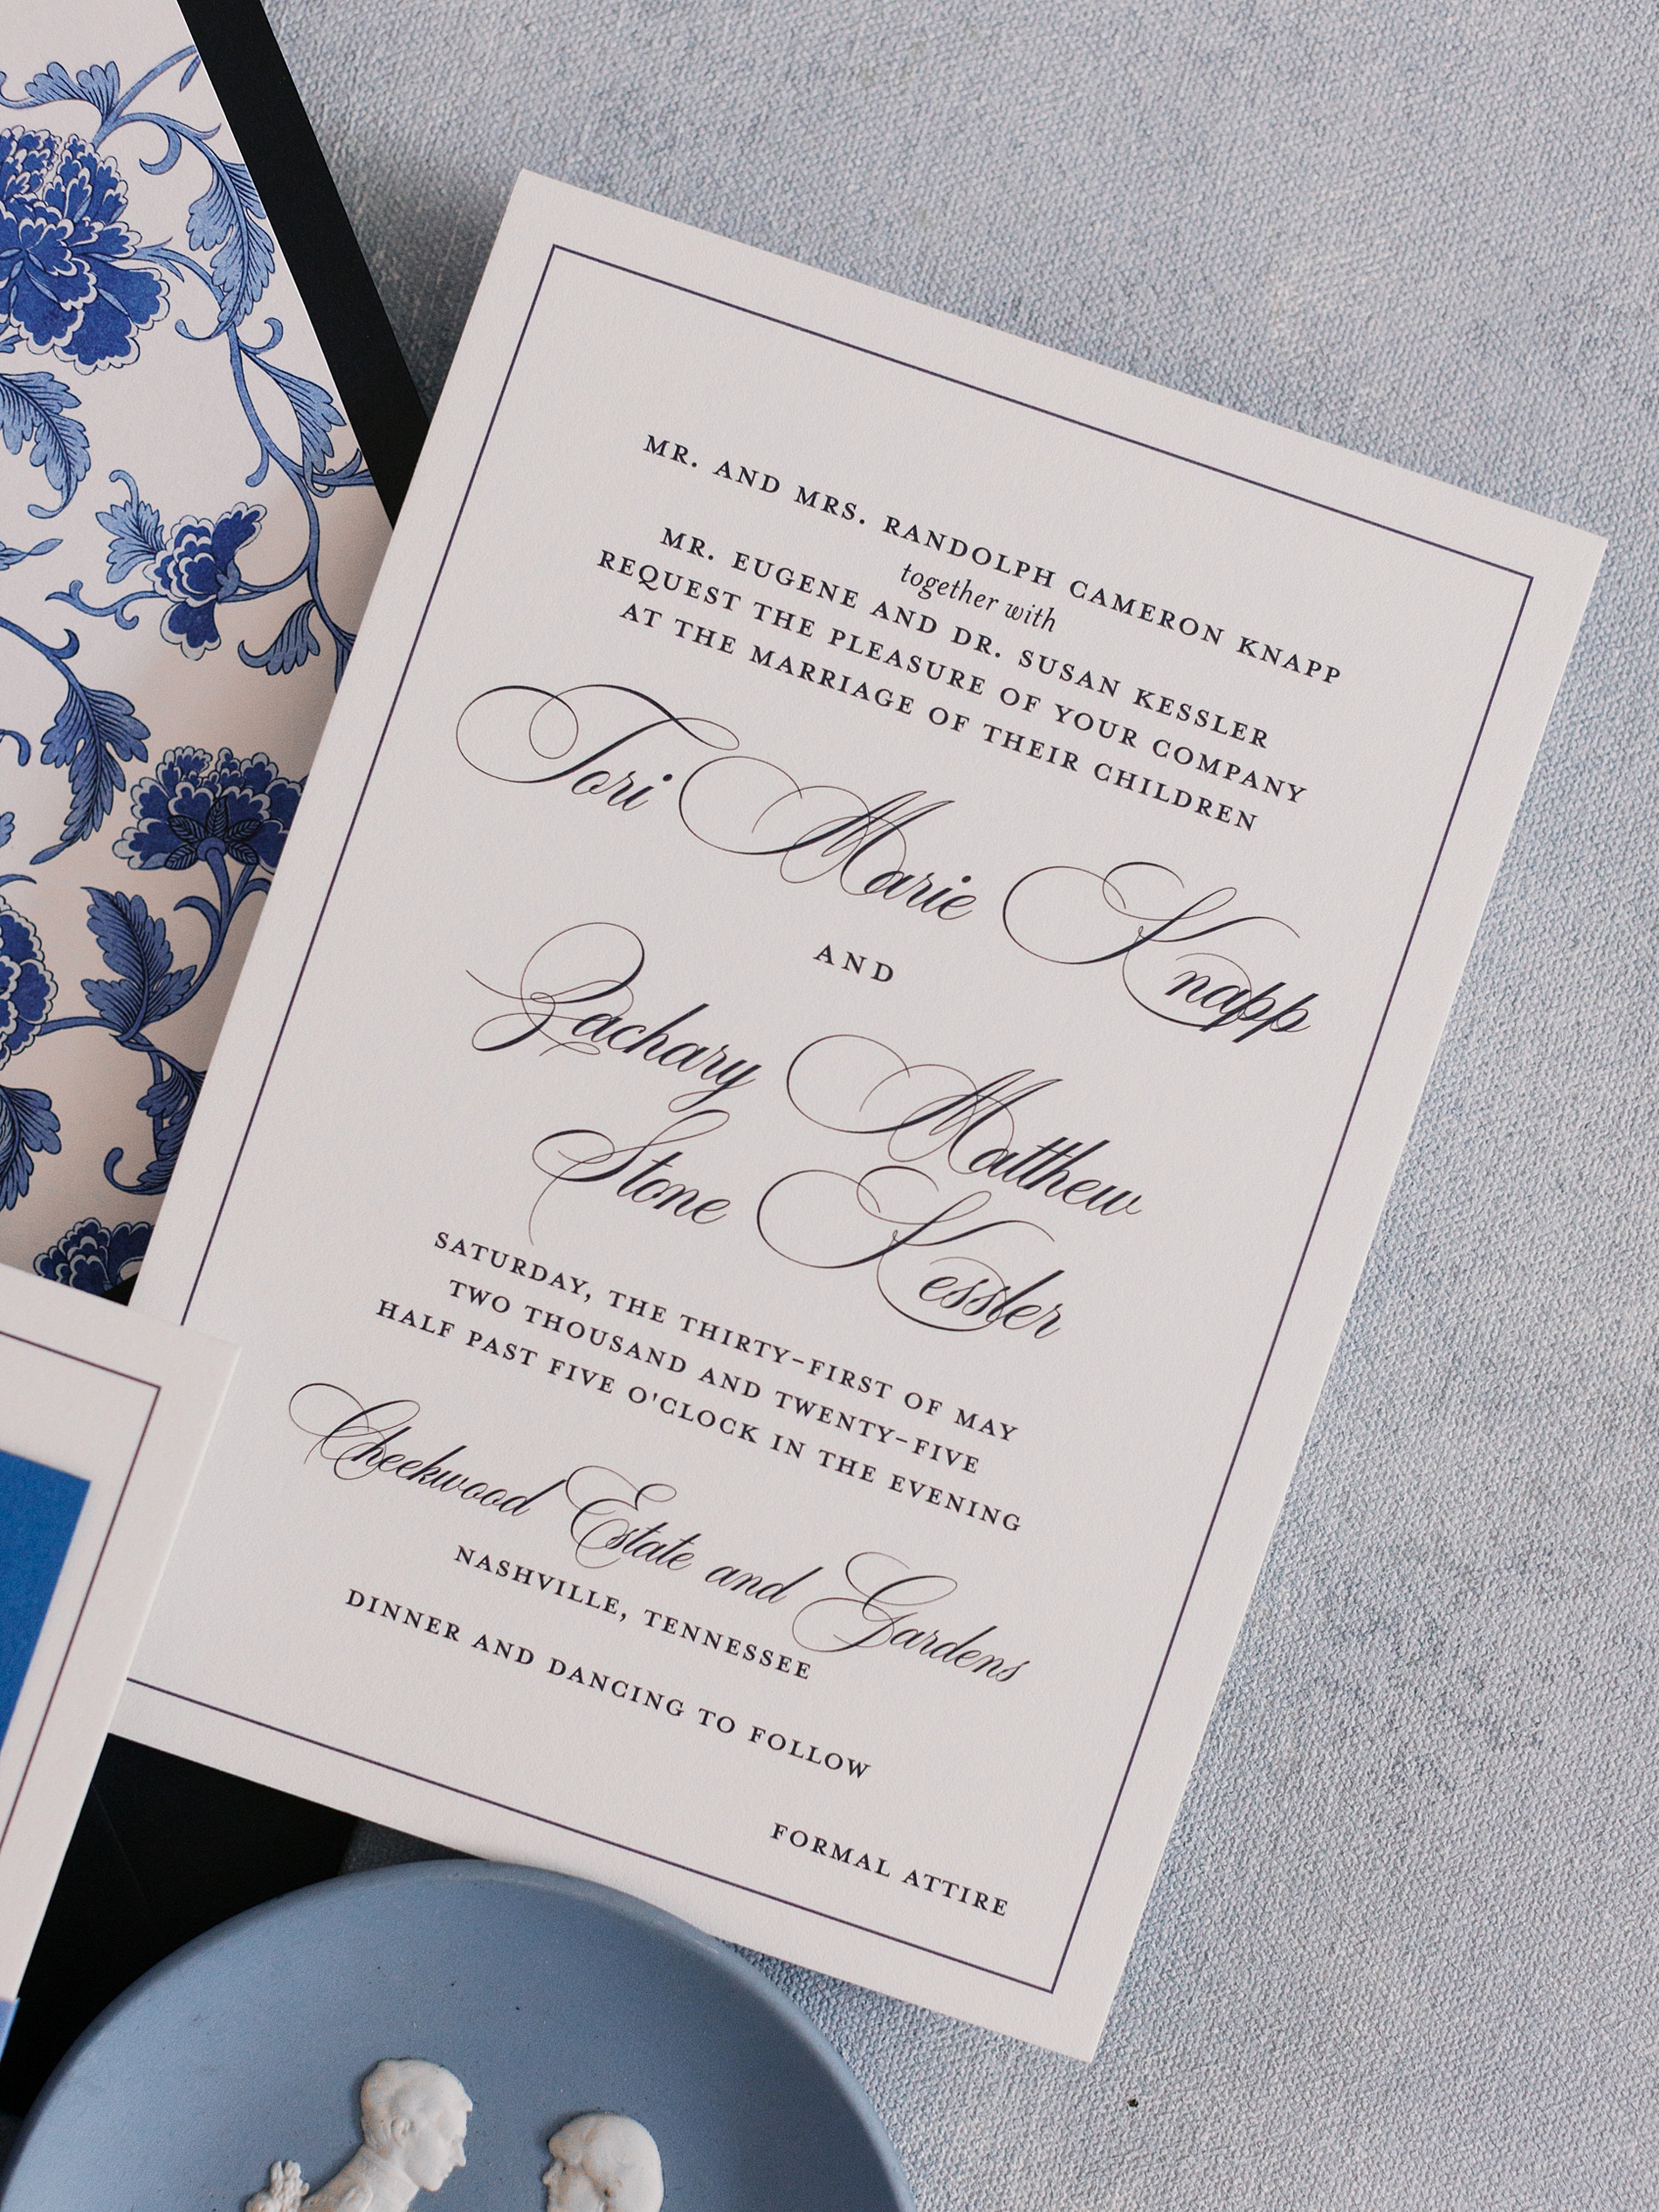 MR. AND MRS. RANDOLPH CAMERON KNAPP
together with
MR. EUGENE AND DR. SUSAN KESSLER
REQUEST THE PLEASURE OF YOUR COMPANY
AT THE MARRIAGE OF THEIR CHILDREN
Tori Marie Knapp
AND
Zachary Matthew
Stone Kessler
SATURDAY, THE THIRTY-FIRST OF MAY
TWO THOUSAND AND TWENTY-FIVE
HALF PAST FIVE O'CLOCK IN THE EVENING
Cheekwood Estate and Gardens
NASHVILLE, TENNESSEE
DINNER AND DANCING TO FOLLOW
FORMAL ATTIRE